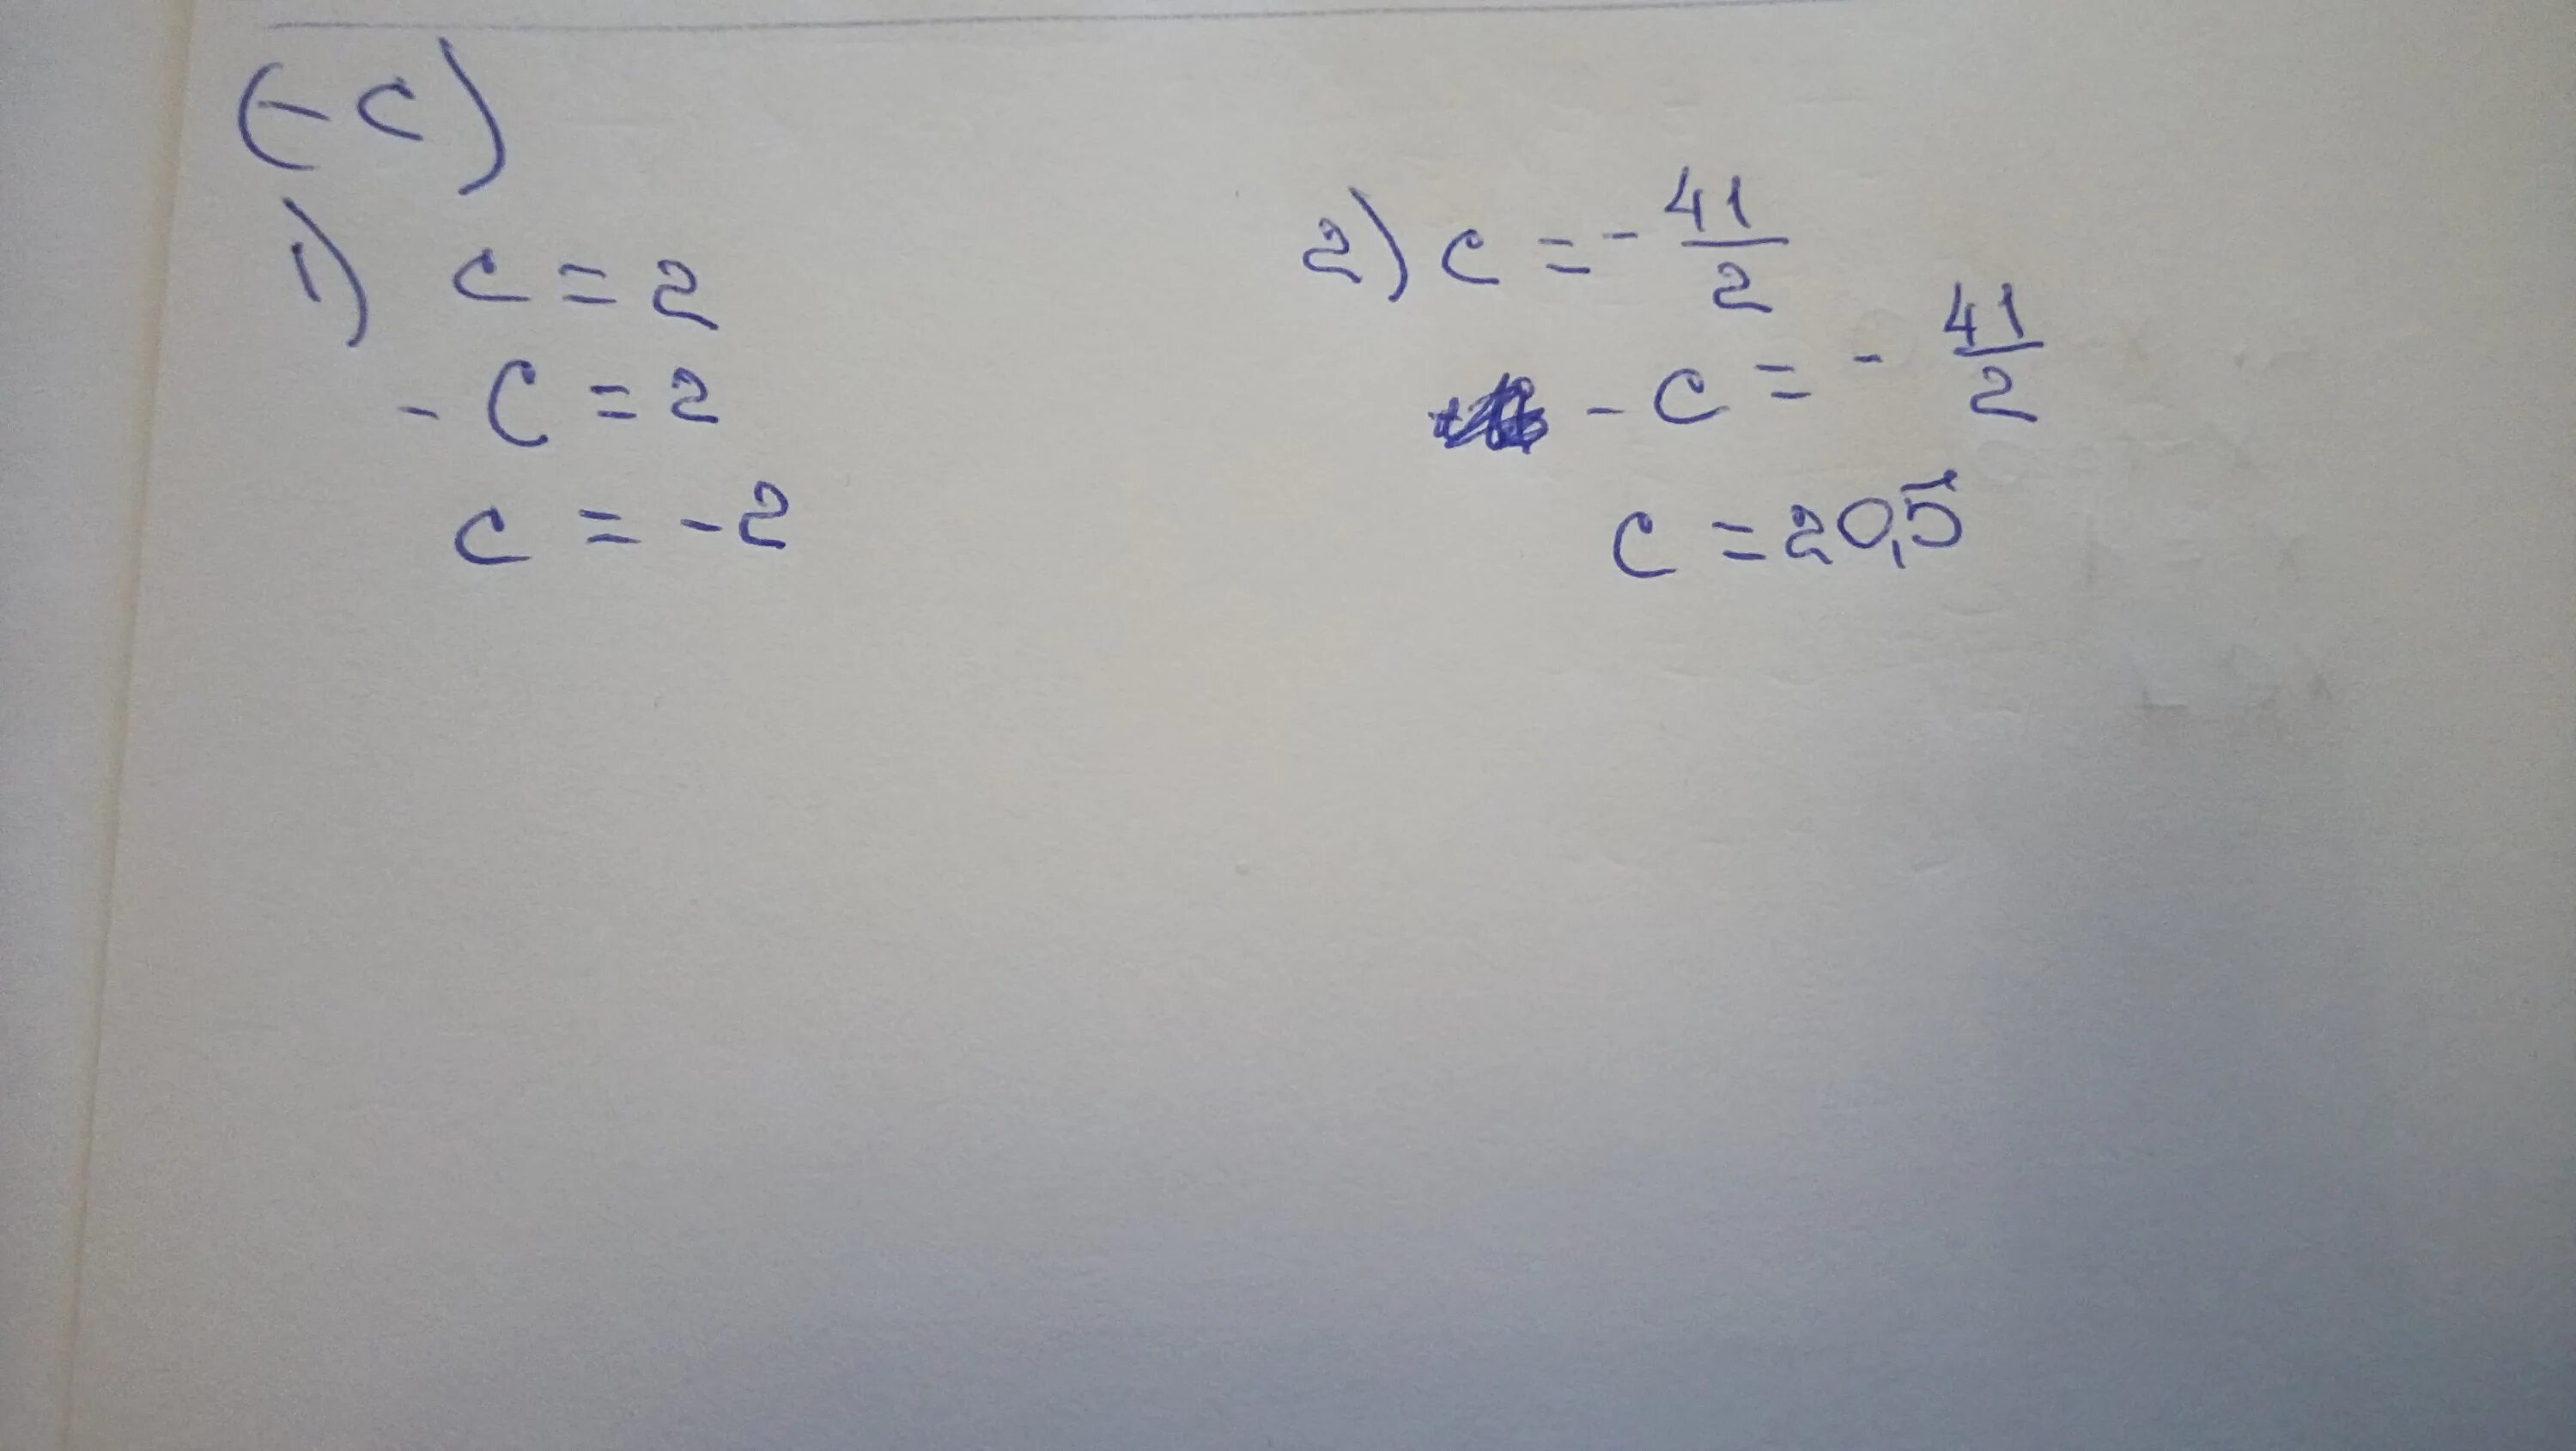 (-c)
1) c = 2
- c = 2
c = -2
2) c = - 41/2
- c = - 41/2
c = 20,5